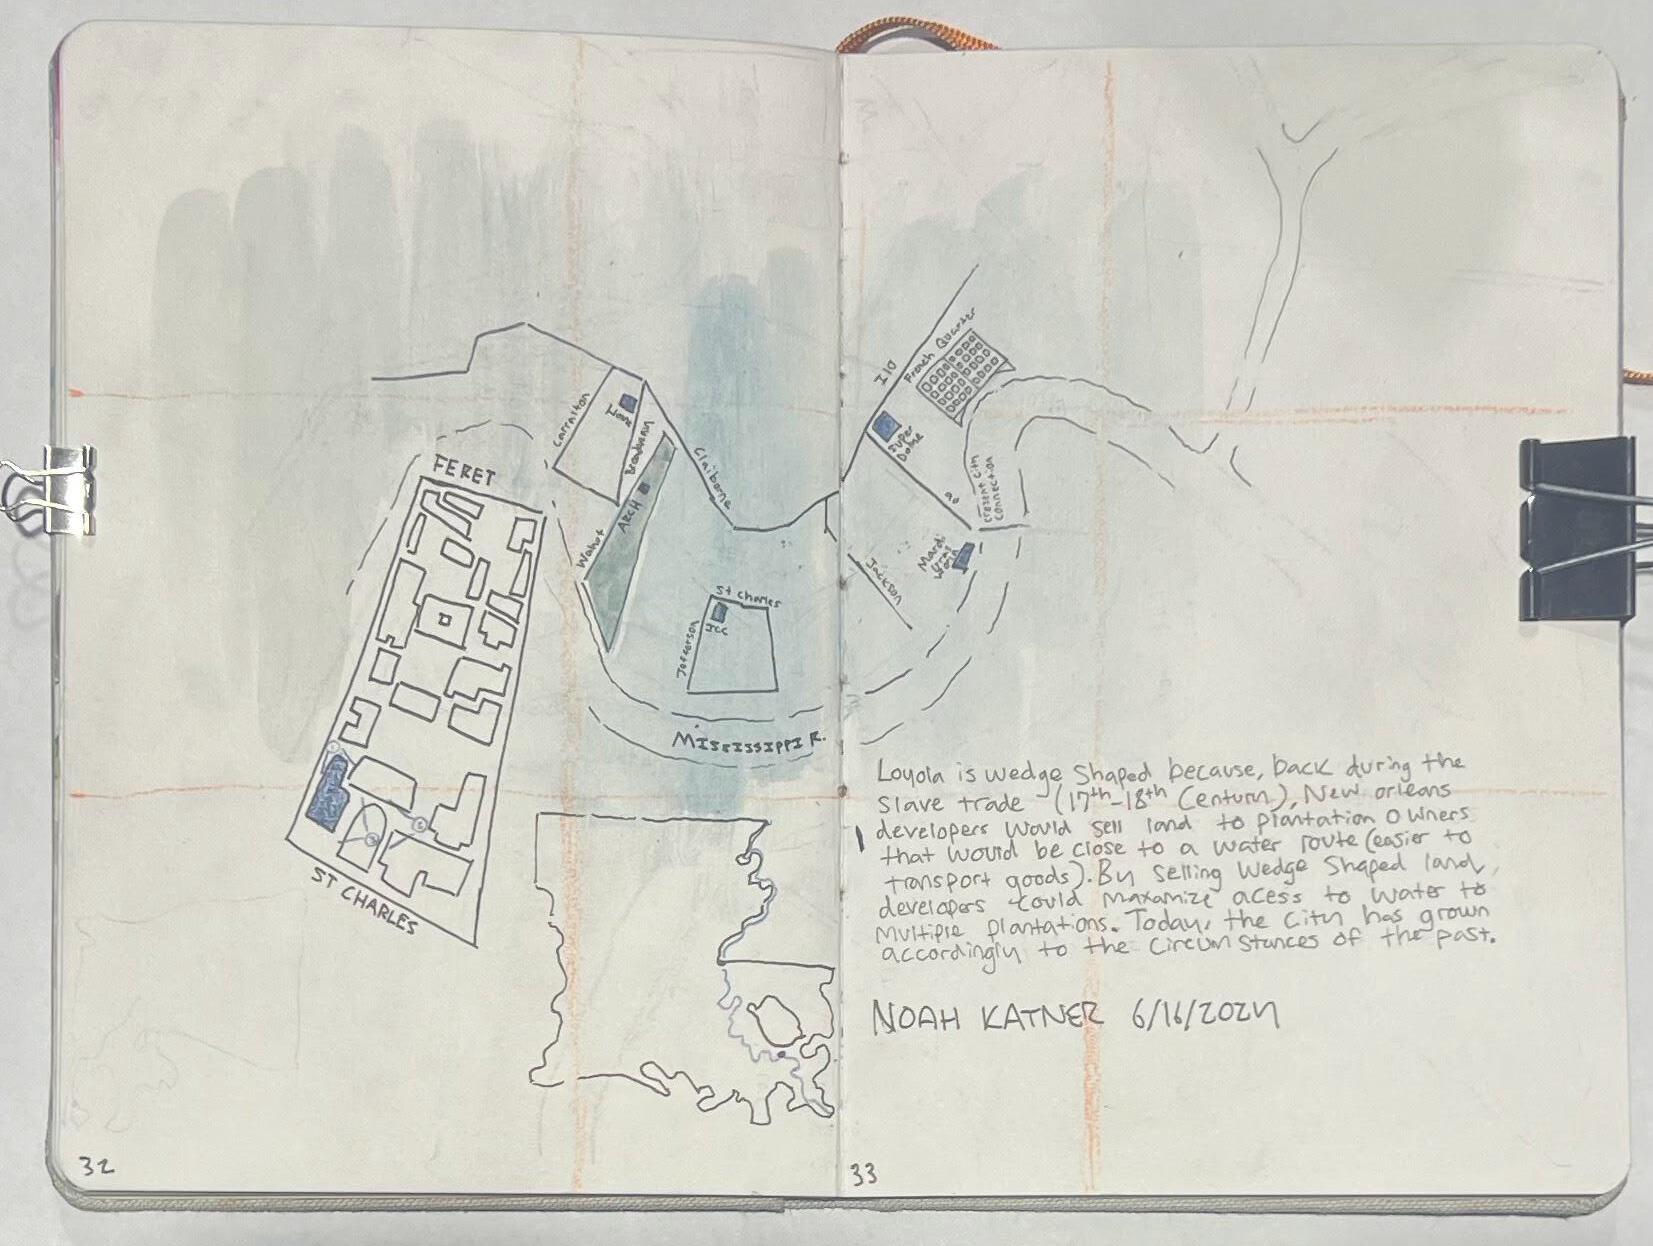 FERET
Carralton
Home
Broadway
ARCH
Walnut
Claiborne
St Charles
JCC
Jefferson
MISSISSIPPI R.
ST CHARLES
I 10
French Quarter
Super
Dome
90
Cresent City
Connection
Mardi
Gras
World
Jackson
Loyola is wedge shaped because, back during the
slave trade (17th-18th Century), New orleans
developers would sell land to plantation owners
that would be close to a water route (easier to
transport goods). By selling wedge shaped land,
developers could maxamize acess to water to
multiple plantations. Today, the city has grown
accordingly to the circumstances of the past.
NOAH KATNER 6/16/2024
32
33